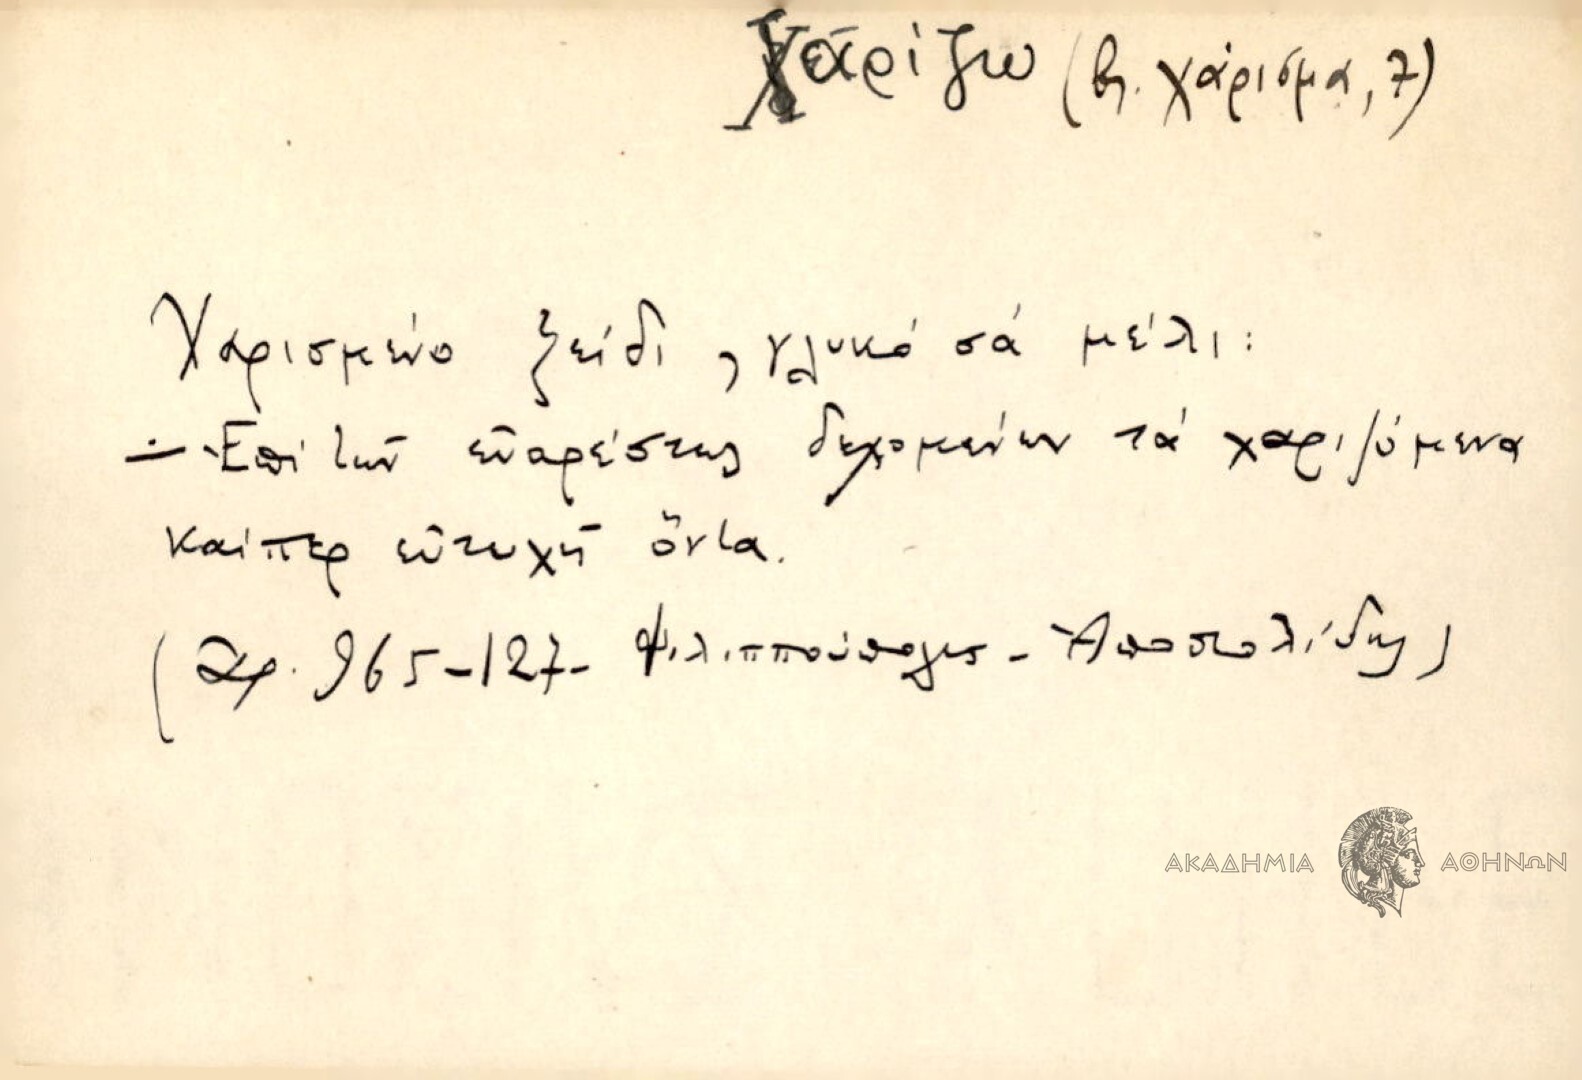 Χαρίζω (βλ. χάρισμα, 7)
Χαρισμένο ξείδι, γλυκό σά μέλι:
– Ἐπὶ τῶν εὐαρέστως δεχομένων τά χαριζόμενα
καίπερ εὐτυχῆ ὄντα.
(Ἀρ. 965-127- Φιλιππούπολις - Ἀποστολίδης)
ΑΚΑΔΗΜΙΑ ΑΘΗΝΩΝ